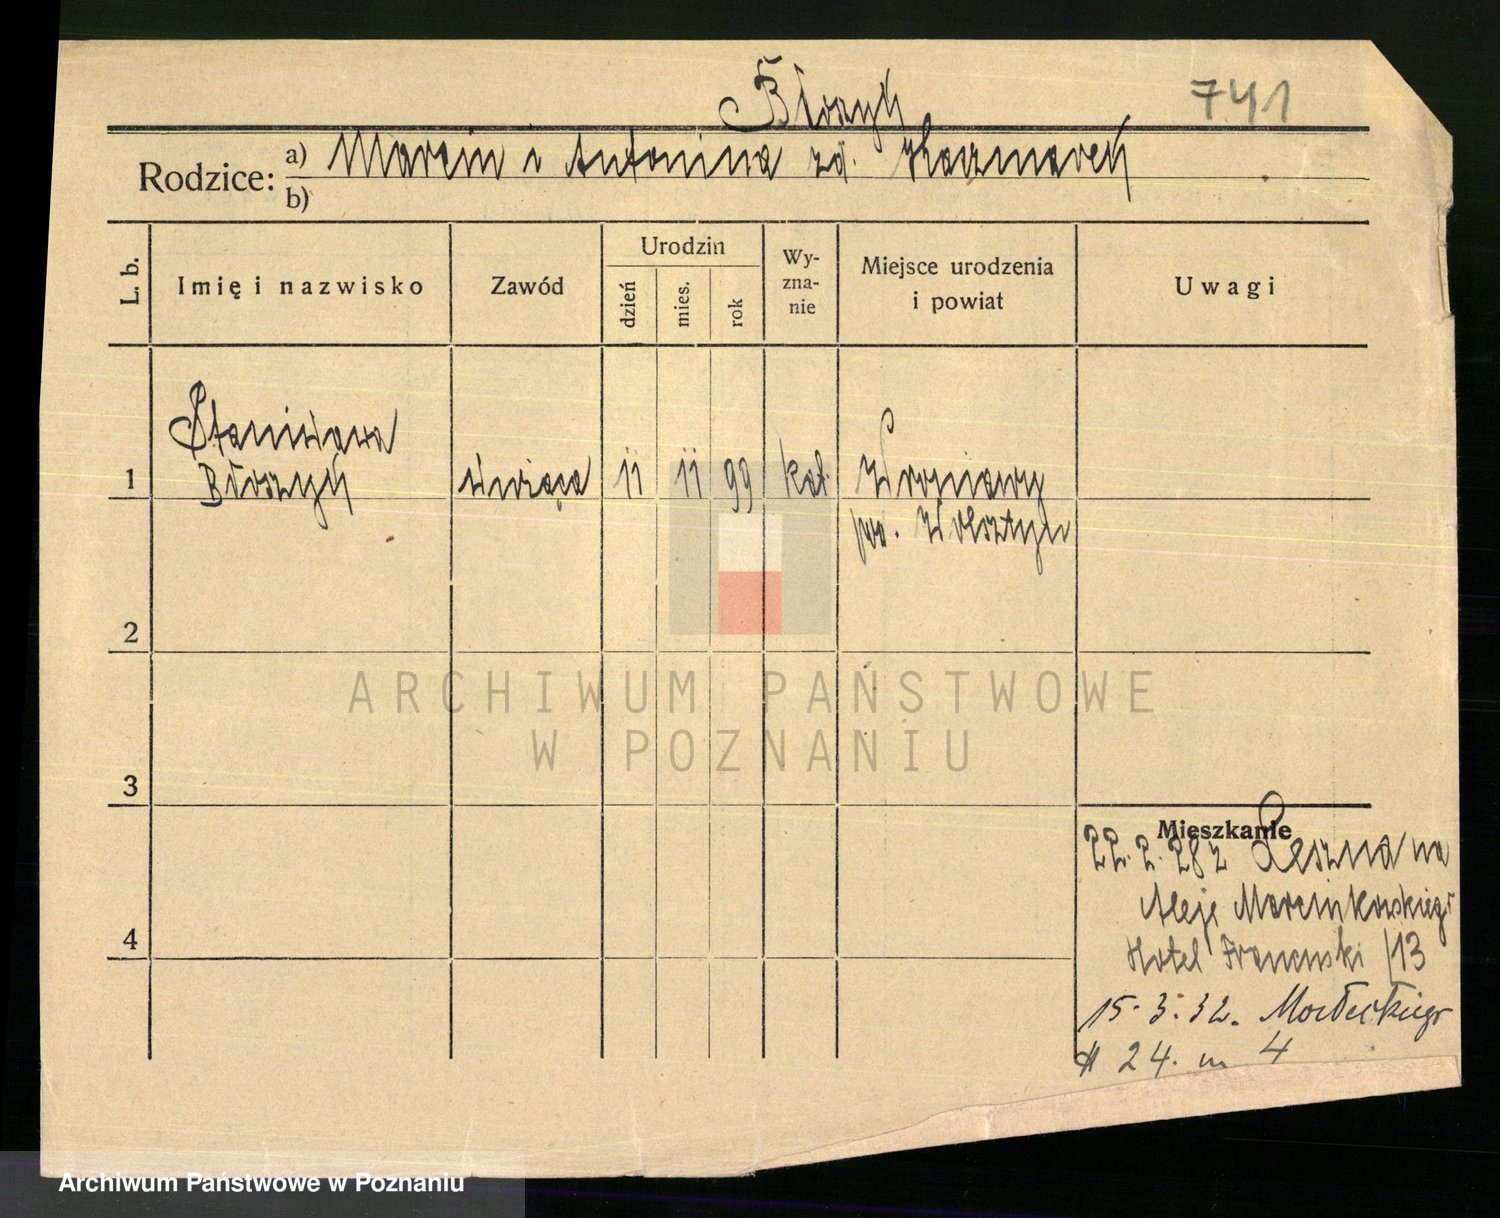 741
Rodzice: a) Marcin i Antonina zd. Kaczmarek
b)
L. b.
Imię i nazwisko
Zawód
Urodzin
dzień
mies.
rok
Wy-
zna-
nie
Miejsce urodzenia
i powiat
Uwagi
Stanisława
1 Błoszyk służąca 11 11 99 kat. Wroniawy
pow. Wolsztyn
2
3
4
Mieszkanie
22. 2. 28 z Leszna na
Aleje Marcinkowskiego
Hotel Francuski /13
15. 3. 32. Małeckiego
24. m 4
ARCHIWUM PAŃSTWOWE
W POZNANIU
Archiwum Państwowe w Poznaniu